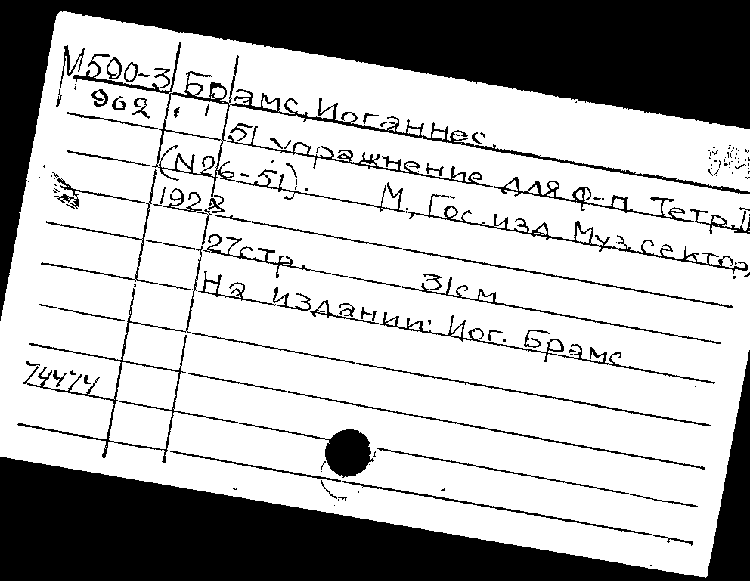 М500-3 Брамс, Иоганнес.
902
51 упражнение для ф-п Тетр. II
(N26-51). М, Гос. изд Муз. сектор,
1928
27стр. 31см
На издании: Иог. Брамс
74474